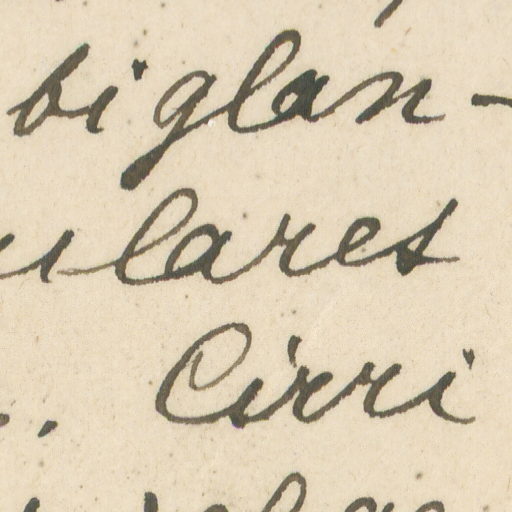 biglan-
ulares
. Cirri